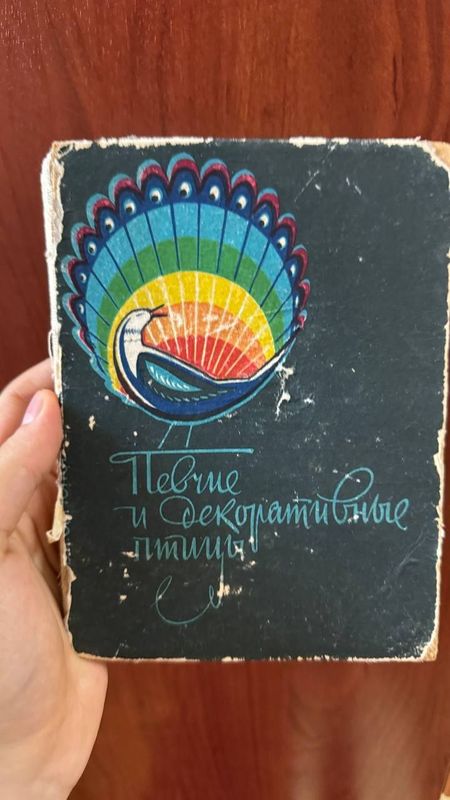 Певчие
и декоративные
птицы